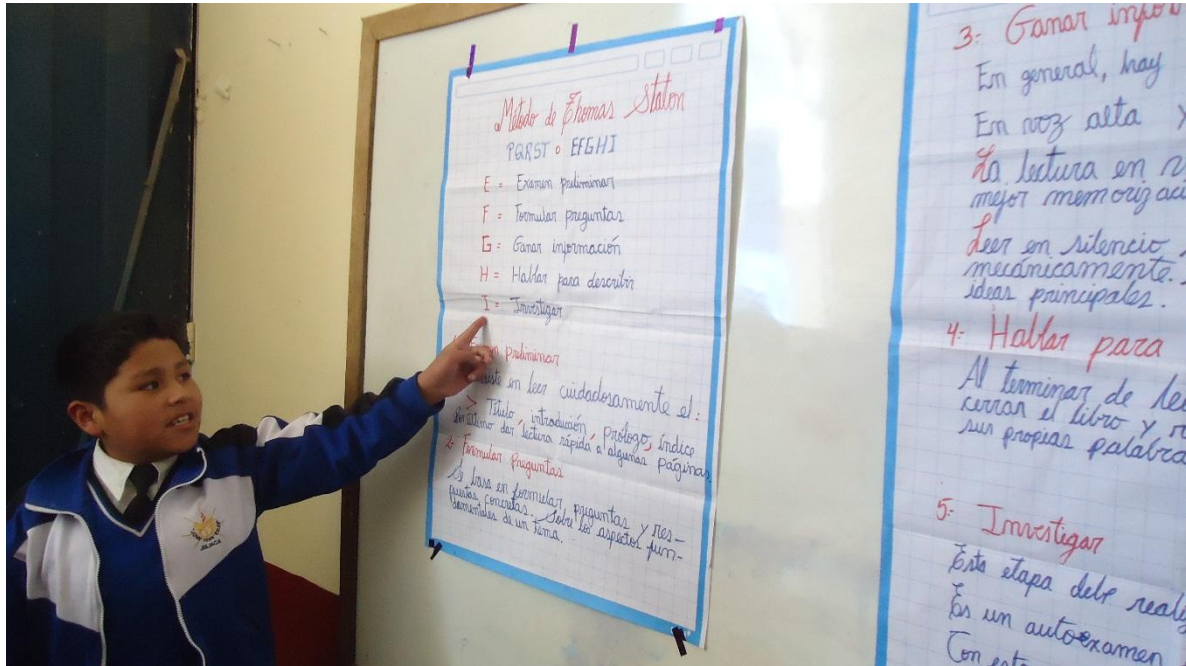 Método de Thomas Staton
PQRST o EFGHI
E = Examen preliminar
F = Formular preguntas
G = Ganar información
H = Hablar para describir
I = Investigar
preliminar
en leer cuidadosamente el:
> Título, introducción, prólogo, índice
Por último dar lectura rápida a algunas páginas
2- Formular Preguntas
Se basa en formular preguntas y res-
puestas concretas. Sobre los aspectos fun-
damentales de un tema.
3- Ganar infor
En general, hay
En voz alta y
La lectura en v
mejor memorizaci
Leer en silencio
mecánicamente.
ideas principales.
4- Hablar para
Al terminar de le
cerrar el libro y r
sus propias palabra
5- Investigar
Esta etapa debe reali
Es un autoexamen
Con est
JULIACA